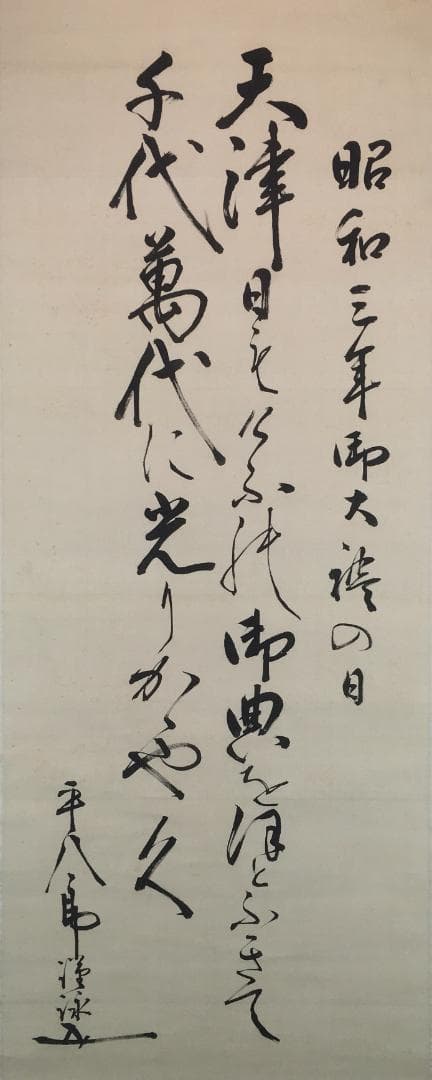 昭和三年御大禮の日
天津日もけふ能御典を許とふきて
千代萬代に光りかゝや久
平八郎謹詠